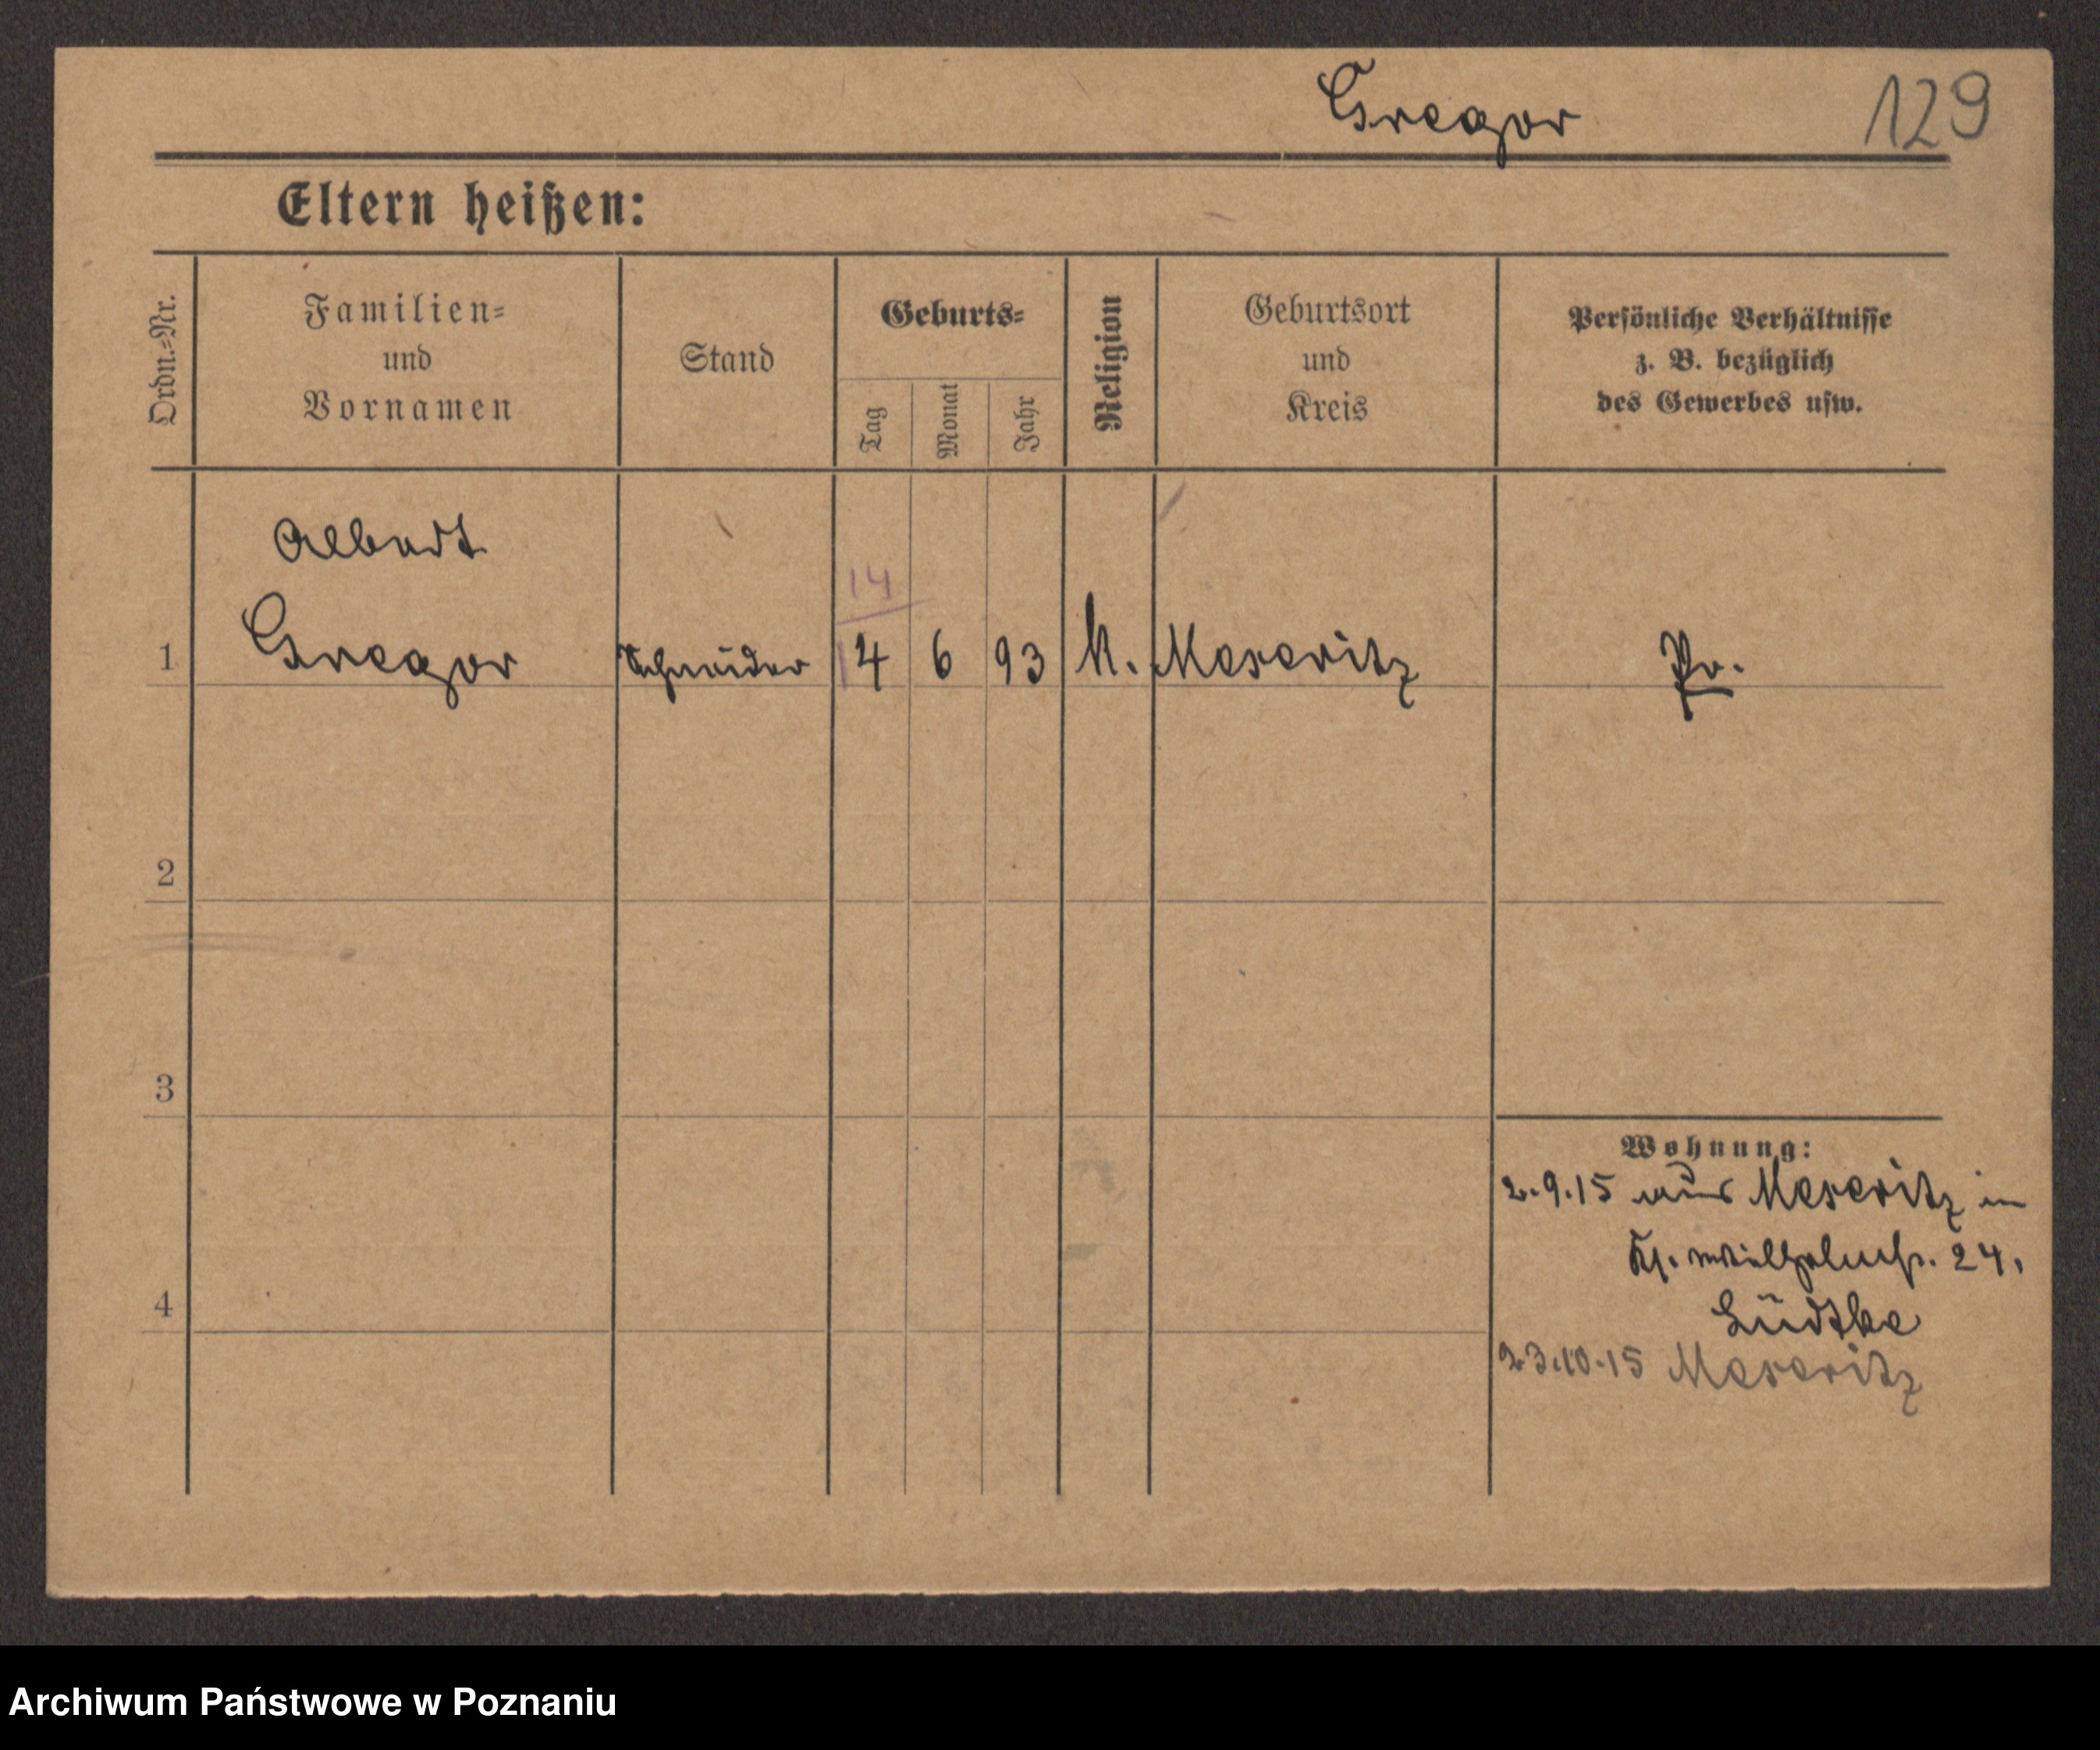 Gregor 129
Eltern heißen:
Ordn.-Nr.
Familien-
und
Vornamen
Stand
Geburts-
Tag
Monat
Jahr
Religion
Geburtsort
und
Kreis
Persönliche Verhältnisse
z. B. bezüglich
des Gewerbes usw.
Albert
14
1 Gregor Schneider 4 6 93 K. Meseritz Pr.
2
3
4
Wohnung:
2.9.15 aus Meseritz in
24.
Lüdtke
23.10.15 Meseritz
Archiwum Państwowe w Poznaniu